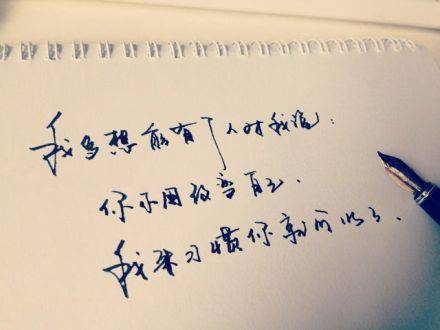 我多想能有个人对我说:
你不用改变自己.
我来习惯你就可以了.